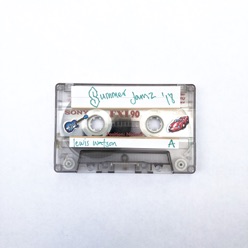 Summer Jamz '18
SONY EX 90
lewis watson A